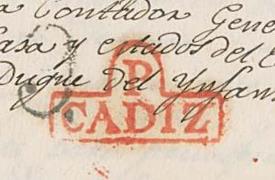 a Contador Gene
Casa y estados del E
Duque del Ynfan
P
CADIZ